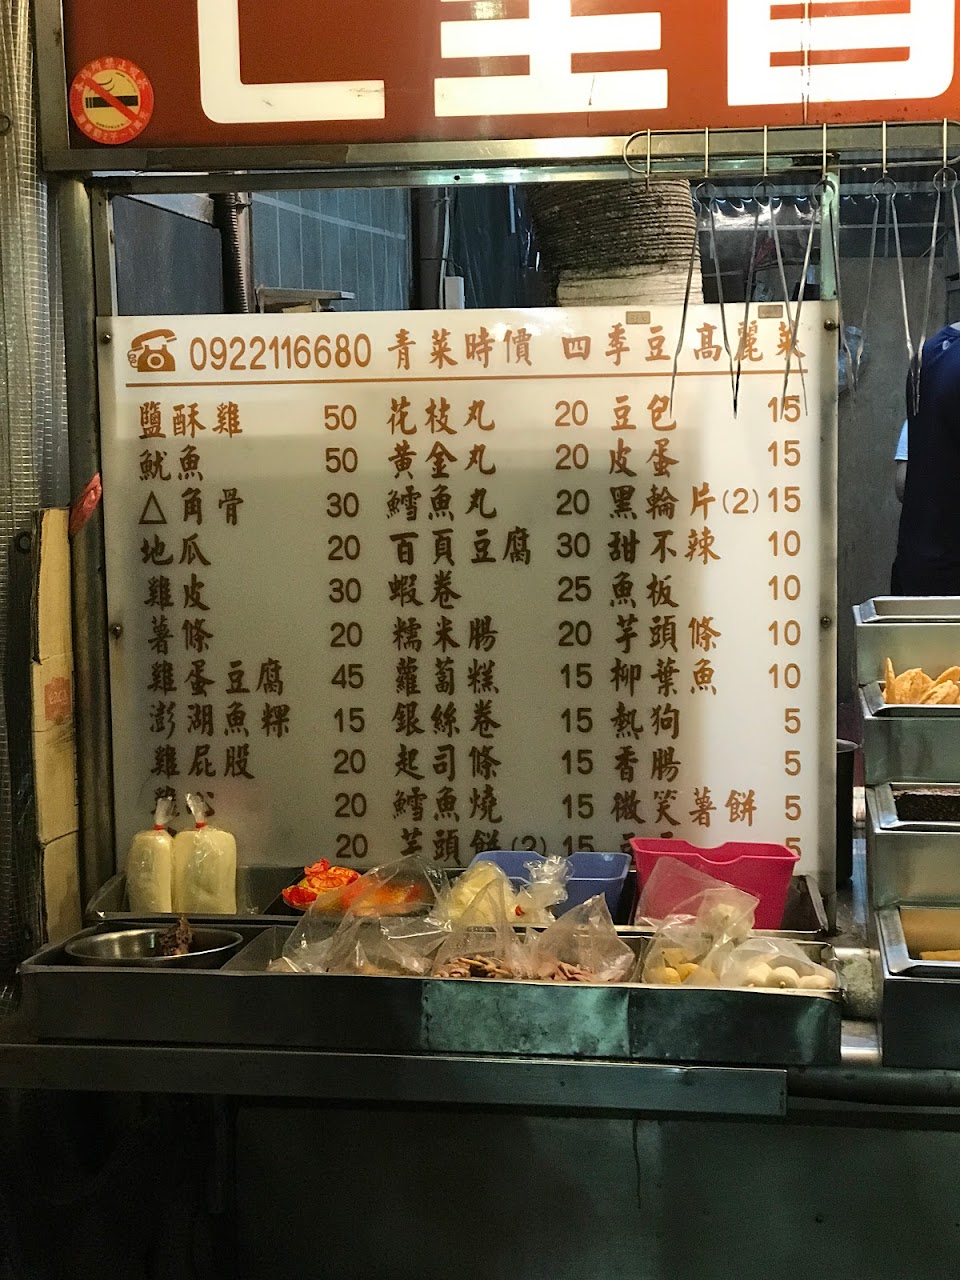 0922116680 青菜時價 四季豆 高麗菜
鹽酥雞 50 花枝丸 20 豆包 15
魷魚 50 黃金丸 20 皮蛋 15
△角骨 30 鱈魚丸 20 黑輪片(2) 15
地瓜 20 百頁豆腐 30 甜不辣 10
雞皮 30 蝦卷 25 魚板 10
薯條 20 糯米腸 20 芋頭條 10
雞蛋豆腐 45 蘿蔔糕 15 柳葉魚 10
澎湖魚粿 15 銀絲卷 15 熱狗 5
雞屁股 20 起司條 15 香腸 5
雞心 20 鱈魚燒 15 微笑薯餅 5
20 芋頭餅(2) 15 5